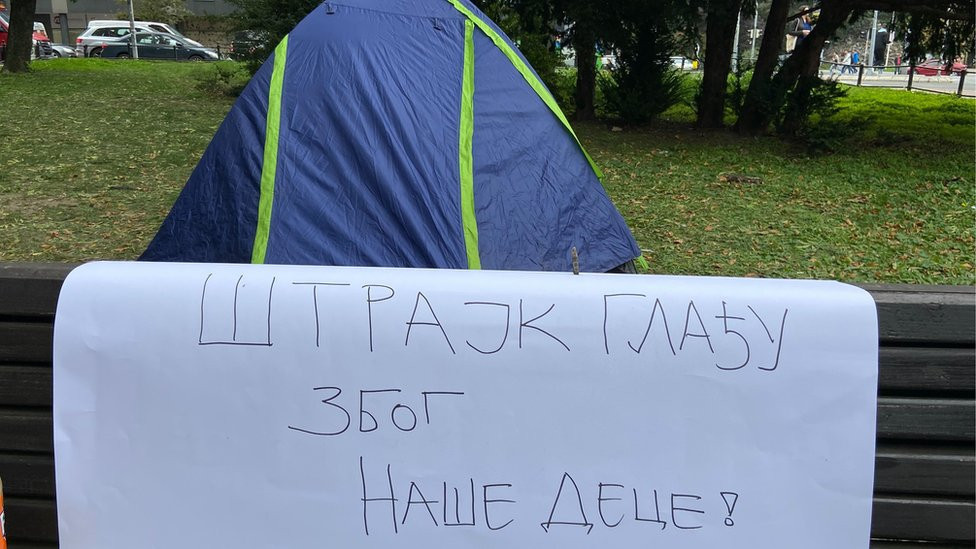 ШТРАЈК ГЛАЂУ
ЗБОГ
НАШЕ ДЕЦЕ!